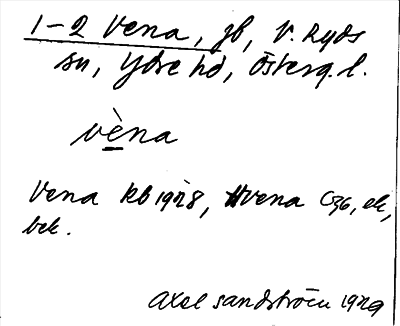 1-2 Vena, gb, V. Ryds
sn, Ydre hd, Österg. l.
vèna
Vena kb 1928, Hvena C36, ek,
bek.
Axel Sandström 1929